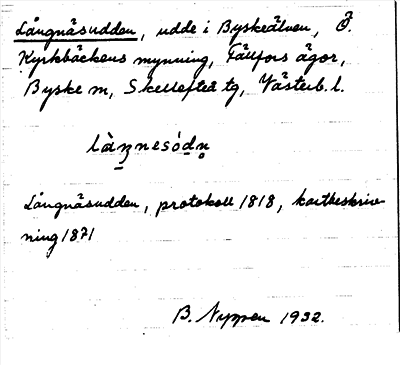 Långnäsudden, udde i Byskeälven, Ö.
Kyrkbäckens mynning, Fällfors ägor,
Byske sn, Skellefteå tg, Västerb. l.
Långnäsudden, protokoll 1818, kartbeskriv-
ning 1871
B. Nyman 1932.